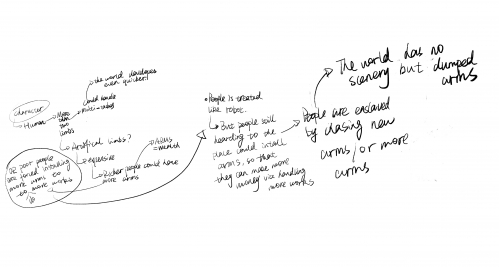 the world developes
even quicker!
could handle
multi-works
character
Human
More
than
two
limbs
Artificial limbs?
expensive
Richer people could have
more arms
Arms
= wealth
poor people
are forced installing
more arms to
do more works
• People is created
like robot.
But people still
heading to the
place could install
arms, so that
they can make more
money via handling
more works
People are enslaved
by chasing new
arms / or more
arms
The world has no
scenery but dumped
arms